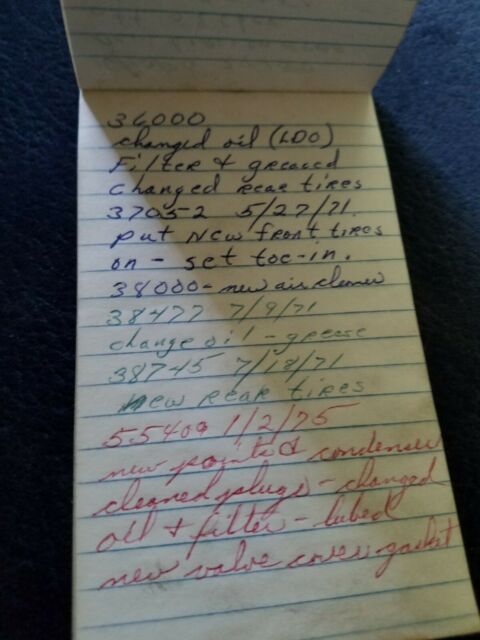 36000
changed oil (LDO)
Filter & greased
changed rear tires
37052 5/27/71.
put New front tires
on - set toe-in.
38000 - new air cleaner
38477 7/9/71
change oil - grease
38745 7/18/71
New rear tires
55400 1/2/75
new points & condenser
cleaned plugs - changed
oil + filter - lubed
new valve cover gasket